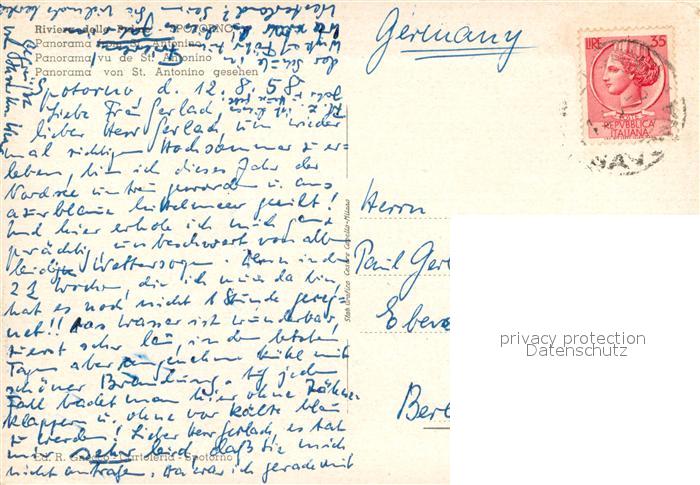 Riviera delle Palme - SPOTORNO
Panorama St. Antonino
Panorama vu de St. Antonino
Panorama von St. Antonino gesehen
Germany
LIRE 35
POSTE
REPVBBLICA
ITALIANA
SAVONA
Spotorno d. 12.8.58
Liebe Frau Gerlach,
lieber Herr Gerlach, um wieder
mal richtigen Hochsommer zu er-
leben, bin ich dieses Jahr der
Nordsee untreu geworden u. ans
azurblaue Mittelmeer geeilt!
Und hier erhole ich mich ganz
prächtig, unbeschwert von allen
leidigen Wettersorgen. Denn in den
2½ Wochen, die ich nun da bin,
hat es noch nicht 1 Stunde gereg-
net!! Das Wasser ist wunderbar,
zuerst sehr lau, in den letzten
Tagen aber angenehm kühl mit
schöner Brandung. Auf jeden
Fall badet man hier ohne Zähne-
klappern u. ohne vor Kälte blau
zu werden! Lieber Herr Gerlach, es tat
mir sehr leid, daß Sie mich
nicht antrafen. Da war ich gerade mit
Herrn
Paul Ger
Ebers
Berl
Stab. Grafico Cesare Capello - Milano
Ed. R. - Cartoleria - Spotorno
privacy protection
Datenschutz